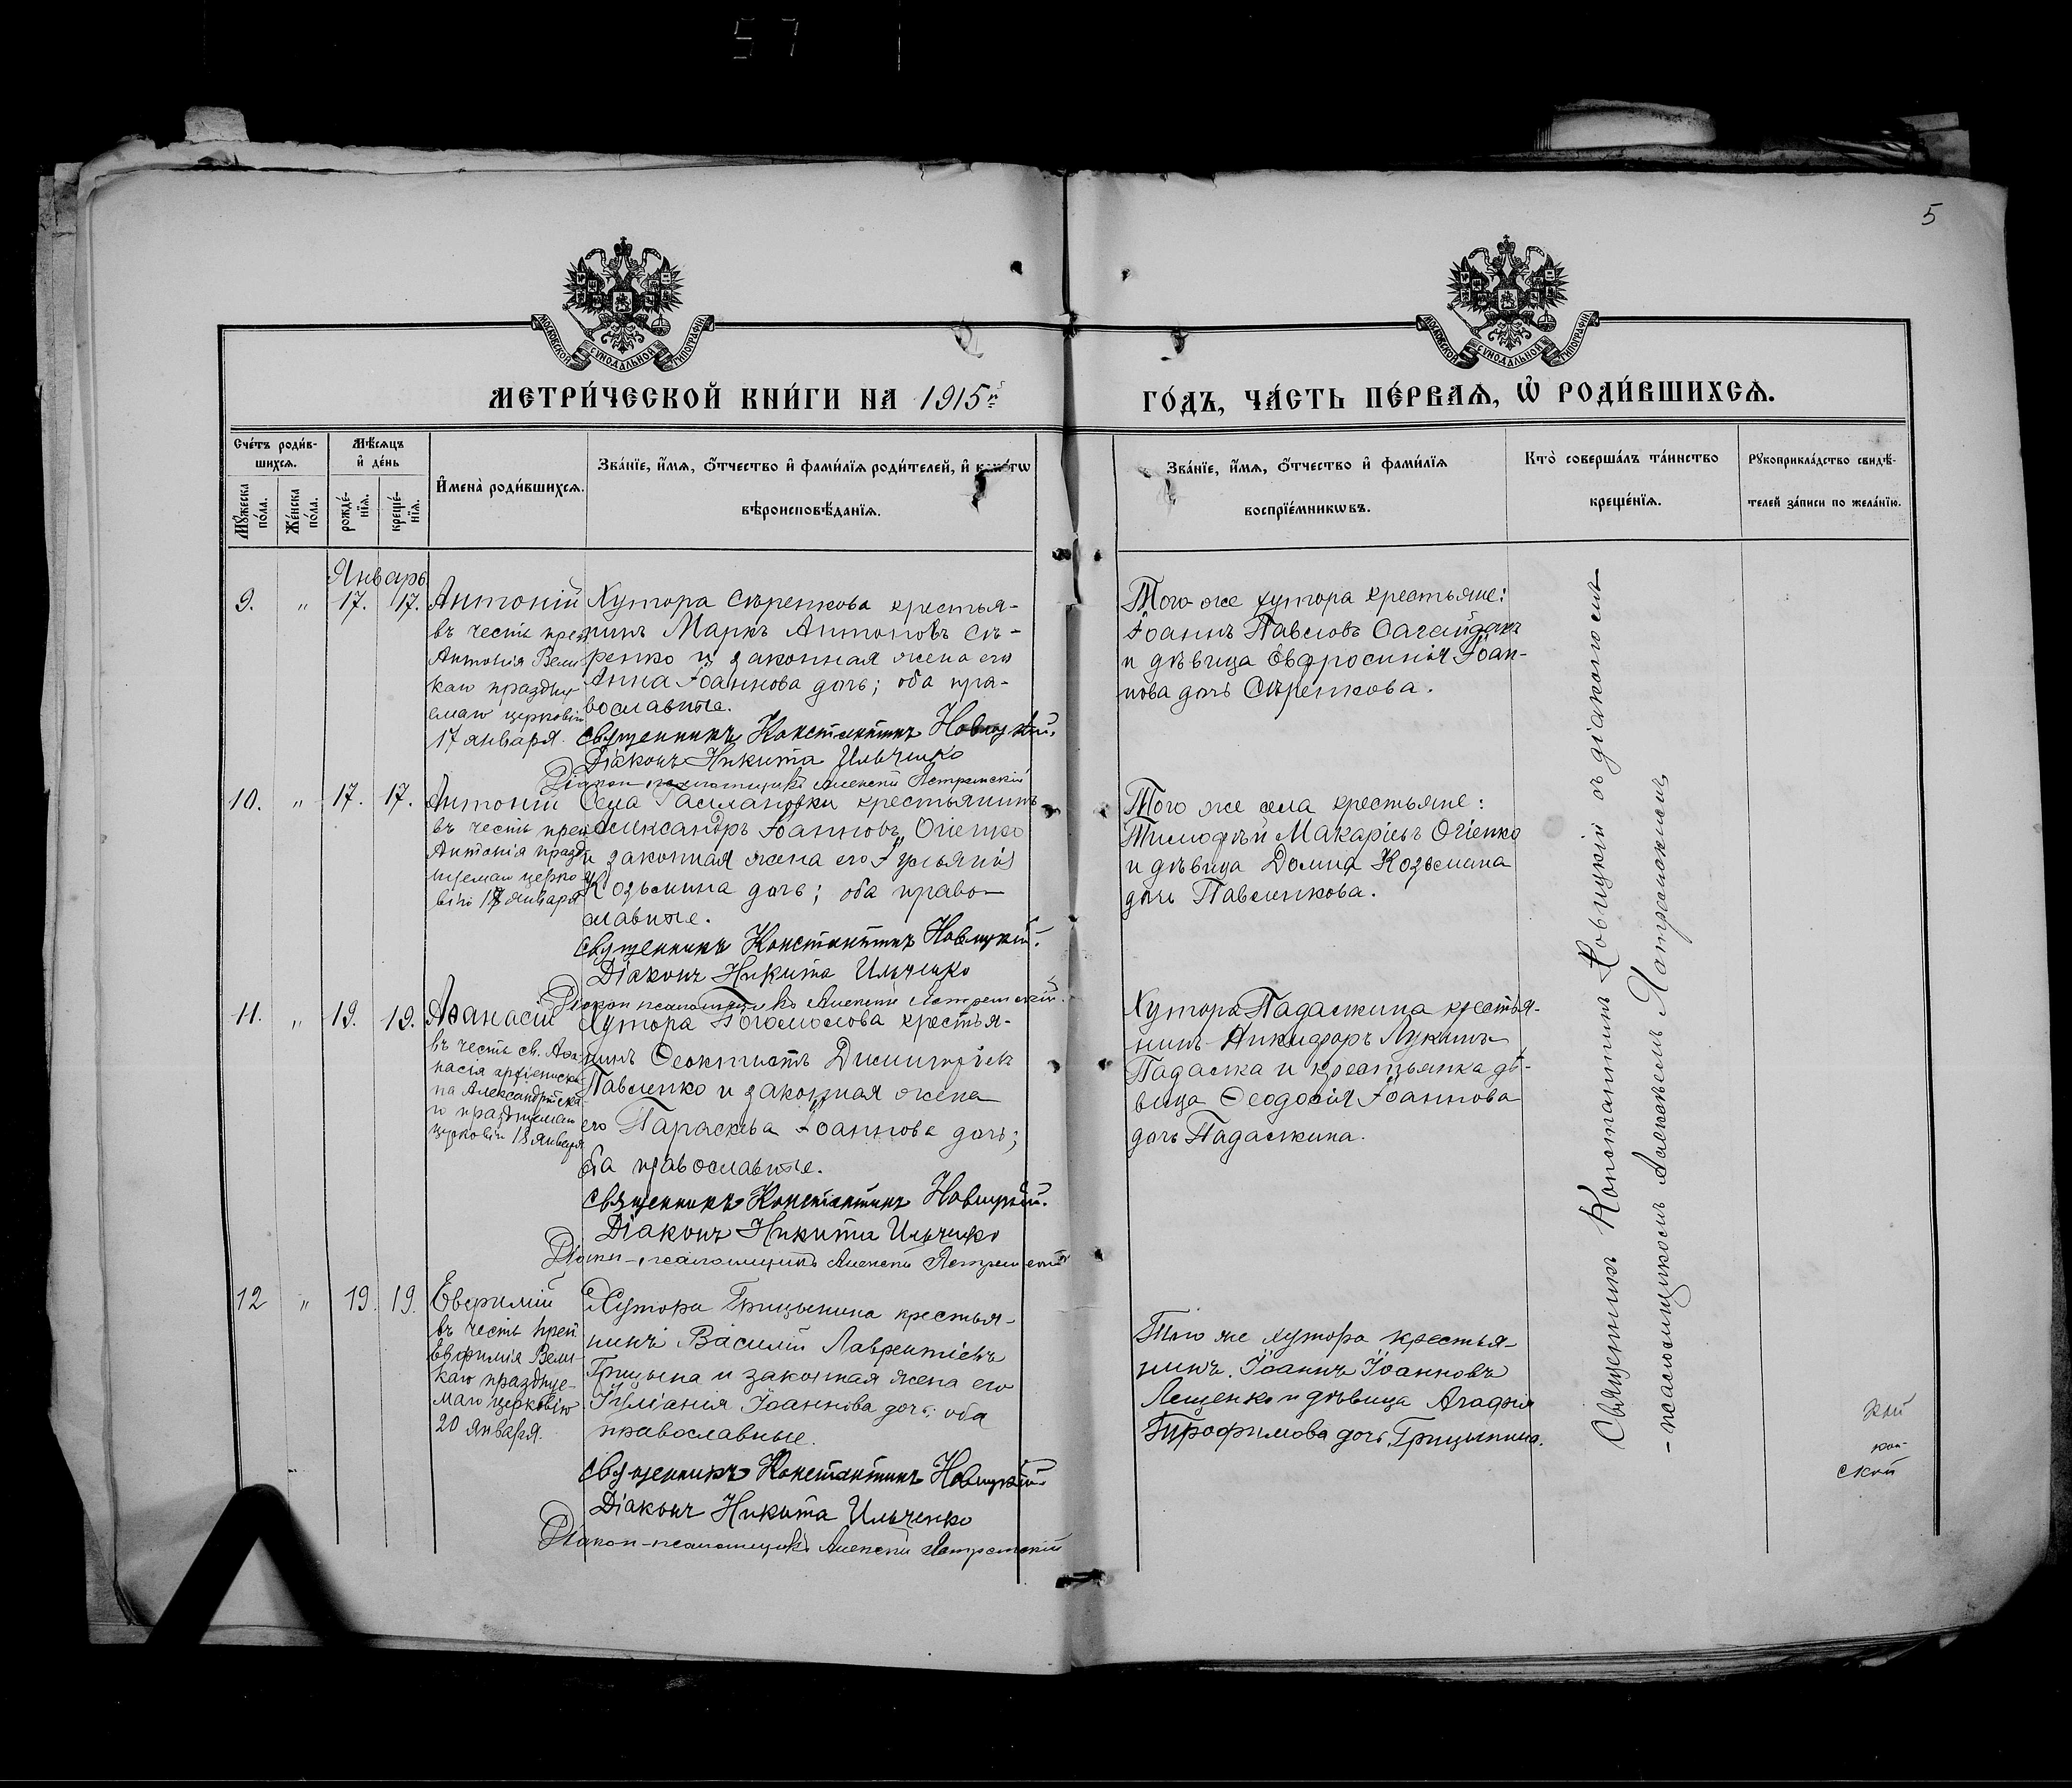 57
5
МОСКОВСКОЙ СУНОДАЛЬНОЙ ТИПОГРАФІИ
МОСКОВСКОЙ СУНОДАЛЬНОЙ ТИПОГРАФІИ
МЕТРИ́ЧЕСКОЙ КНИ́ГИ НА 1915
ГО́ДЪ, ЧА́СТЬ ПЕ́РВАѦ, Ѡ҆ РОДИ́ВШИХСѦ.
Сче́тъ роди́в-
шихсѧ.
Мѣ́сѧцъ
и҆ де́нь
Мꙋ́жеска по́ла.
Же́нска по́ла.
рожде́-
нїѧ.
креще́-
нїѧ.
И҆мена̀ роди́вшихсѧ.
Зва́нїе, и҆́мѧ, ѻ҆́тчество и҆ фами́лїѧ роди́телей, и҆
вѣроисповѣ́данїѧ.
Зва́нїе, и҆́мѧ, ѻ҆́тчество и҆ фами́лїѧ
воспрїе́мникѡвъ.
Кто̀ соверша́лъ та́инство
креще́нїѧ.
Рꙋкоприкла́дство свидѣ́-
телей за́писи по жела́нїю.
Январь
9. " 17. 17.
Антоній
въ честь преп
Антонія Вели
каго праздну
емаго церковію
17 января
Хутора Сѣренкова крестья-
нинъ Маркъ Антоновъ Сѣ-
ренко и законная жена его
Анна Іоаннова дочь; оба пра-
вославные.
Священникъ Константинъ Новицкій.
Діаконъ Никита Ильченко
Діакон-псаломщикъ Алексій Ястремскій
Того же хутора крестьяне:
Іоаннъ Павловъ Сагайдакъ
и дѣвица Евфросинія Іоан-
нова дочь Сѣренкова.
10. " 17. 17.
Антоній
въ честь преп
Антонія празд
нуемаго церко
вію 17 января
Села крестьянинъ
Александръ Іоанновъ Огіенко
и законная жена его Іуліанія
Козьмина дочь; оба право-
славные.
Священникъ Константинъ Новицкій.
Діаконъ Никита Ильченко
Діакон псаломщикъ Алексій Ястремскій.
Того же села крестьяне:
Тимофѣй Макаріевъ Огіенко
и дѣвица Домна Козьмина
дочь Павленкова.
11. " 19. 19.
Аѳанасій
въ честь св. Аѳа-
насія архіеписко-
па Александрійска-
го празднуемаго
церковію 18 января
Хутора Богомолова крестья-
нинъ Ѳеоктистъ Димитріевъ
Павленко и законная жена
его Параскева Іоаннова дочь;
оба православные.
Священникъ Константинъ Новицкій.
Діаконъ Никита Ильченко
Діакон-псаломщикъ Алексій Ястремскій
Хутора Падалкина крестья-
нинъ Никифоръ Лукинъ
Падалка и крестьянка дѣ-
вица Ѳеодосія Іоаннова
дочь Падалкина.
12 " 19. 19.
Евфимій
въ честь преп
Евфимія Вели-
каго праздуе-
маго церковію
20 января.
Хутора Грицынина крестья-
нинъ Василій Лаврентіевъ
Грицына и законная жена его
Іуліанія Іоаннова дочь; оба
православные.
Священникъ Константинъ Новицкій.
Діаконъ Никита Ильченко
Діакон-псаломщикъ Алексій Ястремскій
Того же хутора крестья-
нинъ Іоаннъ Іоанновъ
Лещенко и дѣвица Агафія
Трофимова дочь Грицынина.
Священникъ Константинъ Новицкій съ діакономъ
-псаломщикомъ Алексѣемъ Ястремскимъ
кій
кон-
ской